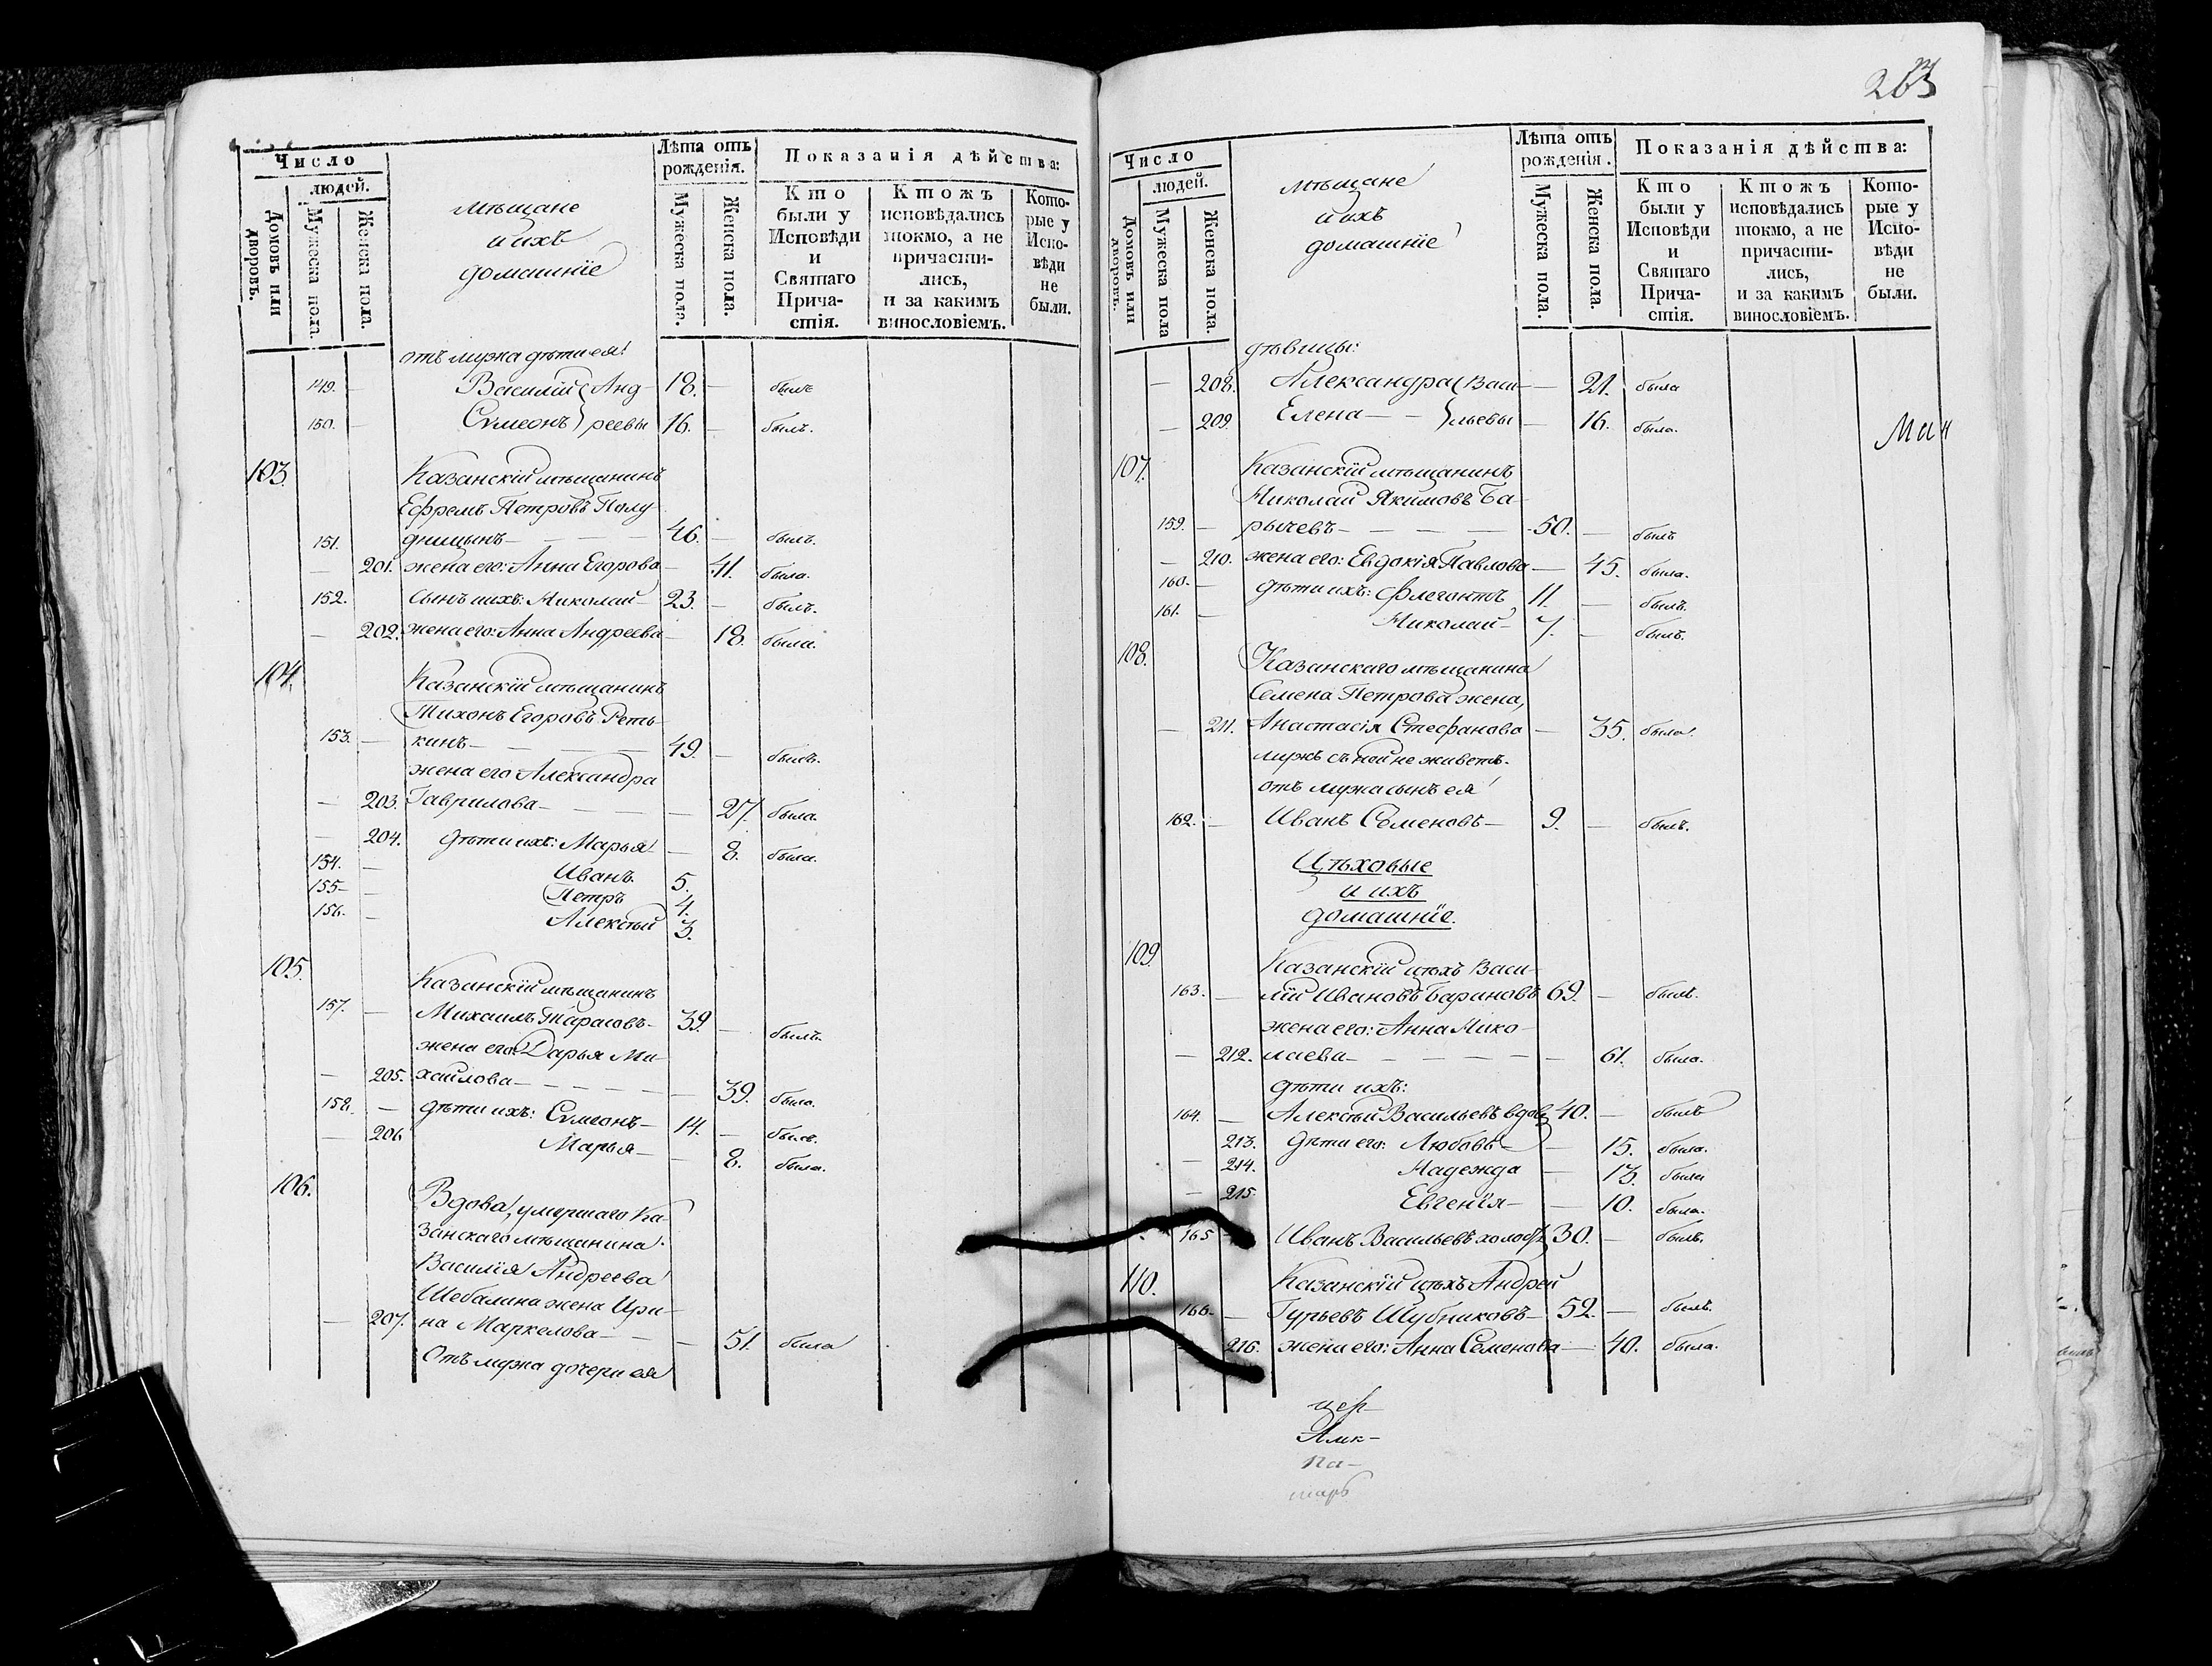 Число
людей.
Домовъ или дворовъ.
Мужеска пола.
Женска пола.
мѣщане
и ихъ
домашніе
Лѣта отъ
рожденія.
Мужеска пола.
Женска пола.
Показанія дѣйства:
Кто
были у
Исповѣди
и
Святаго
Прича-
стія.
Ктожъ
исповѣдались
токмо, а не
причасти-
лись,
и за какимъ
винословіемъ.
Кото-
рые у
Испо-
вѣди
не
были.
отъ мужа дѣти ея:
149. — Василій Анд- 18. — былъ
150. — Симеонъ реевы 16. — былъ.
103. Казанскій мѣщанинъ
Ефремъ Петровъ Полу-
151. дницынъ — 46. — былъ.
— 201. жена его: Анна Егорова — 41. была.
152. сынъ ихъ: Николай — 23. — былъ.
— 202. жена его: Анна Андреева — 18. была.
104. Казанскій мѣщанинъ
Тихонъ Егоровъ Реть-
153. — кинъ — 49. — былъ.
жена его Александра
— 203. Гаврилова — — 27. была.
— 204. дѣти ихъ: Марья — 8. была.
154. — Иванъ 5.
155 — Петръ 4.
156. — Алексѣй 3.
105. Казанскій мѣщанинъ
157. — Михаилъ Тарасовъ — 39. — былъ.
жена его: Дарья Ми-
— 205. хайлова — — 39. была.
158. — дѣти ихъ: Симеонъ — 14. — былъ.
— 206 Марья — — 8. была.
106. Вдова, умершаго Ка-
занскаго мѣщанина
Василія Андреева
Шебалина жена Ири-
— 207. на Маркелова — — 51. была
Отъ мужа дочери ея
263
Число
людей.
Домовъ или дворовъ.
Мужеска пола
Женска пола.
мѣщане
и ихъ
домашніе
Лѣта отъ
рожденія.
Мужеска пола.
Женска пола.
Показанія дѣйства:
Кто
были у
Исповѣди
и
Святаго
Прича-
стія.
Ктожъ
исповѣдались
токмо, а не
причасти-
лись,
и за какимъ
винословіемъ.
Кото-
рые у
Испо-
вѣди
не
были.
дѣвицы:
— 208. Александра Васи- — 21. была
— 209. Елена — — льевы — 16. была.
107. Казанскій мѣщанинъ
Николай Якимовъ Ба-
159. — рычевъ — 50. — былъ
— 210. жена его: Евдокія Павлова — 45. была.
160. — дѣти ихъ: Флегонтъ 11. — былъ.
161. — Николай — 7. — былъ.
108. Казанскаго мѣщанина
Семена Петрова жена,
— 211. Анастасія Стефанова — 35. была.
мужъ съ ней не живетъ.
отъ мужа сынъ ея
162. — Иванъ Семеновъ — 9. — былъ.
Цѣховые
и ихъ
домашніе.
109. Казанскій цѣхъ Васи-
163. — лій Ивановъ Бариновъ 69. — былъ.
жена его: Анна Нико-
— 212. лаева — — 61. была.
дѣти ихъ:
164. — Алексѣй Васильевъ вдовъ 40. — былъ
213. Дѣти его: Любовь — 15. была.
— 214. Надежда — 13. была
— 215. Евгенія — — 10. была.
165 Иванъ Васильевъ холостъ 30. — былъ.
110. Казанскій цѣхъ Андрей
166. — Гурьевъ Шубниковъ — 52. — былъ.
216. жена его: Анна Семенова — 40. была.